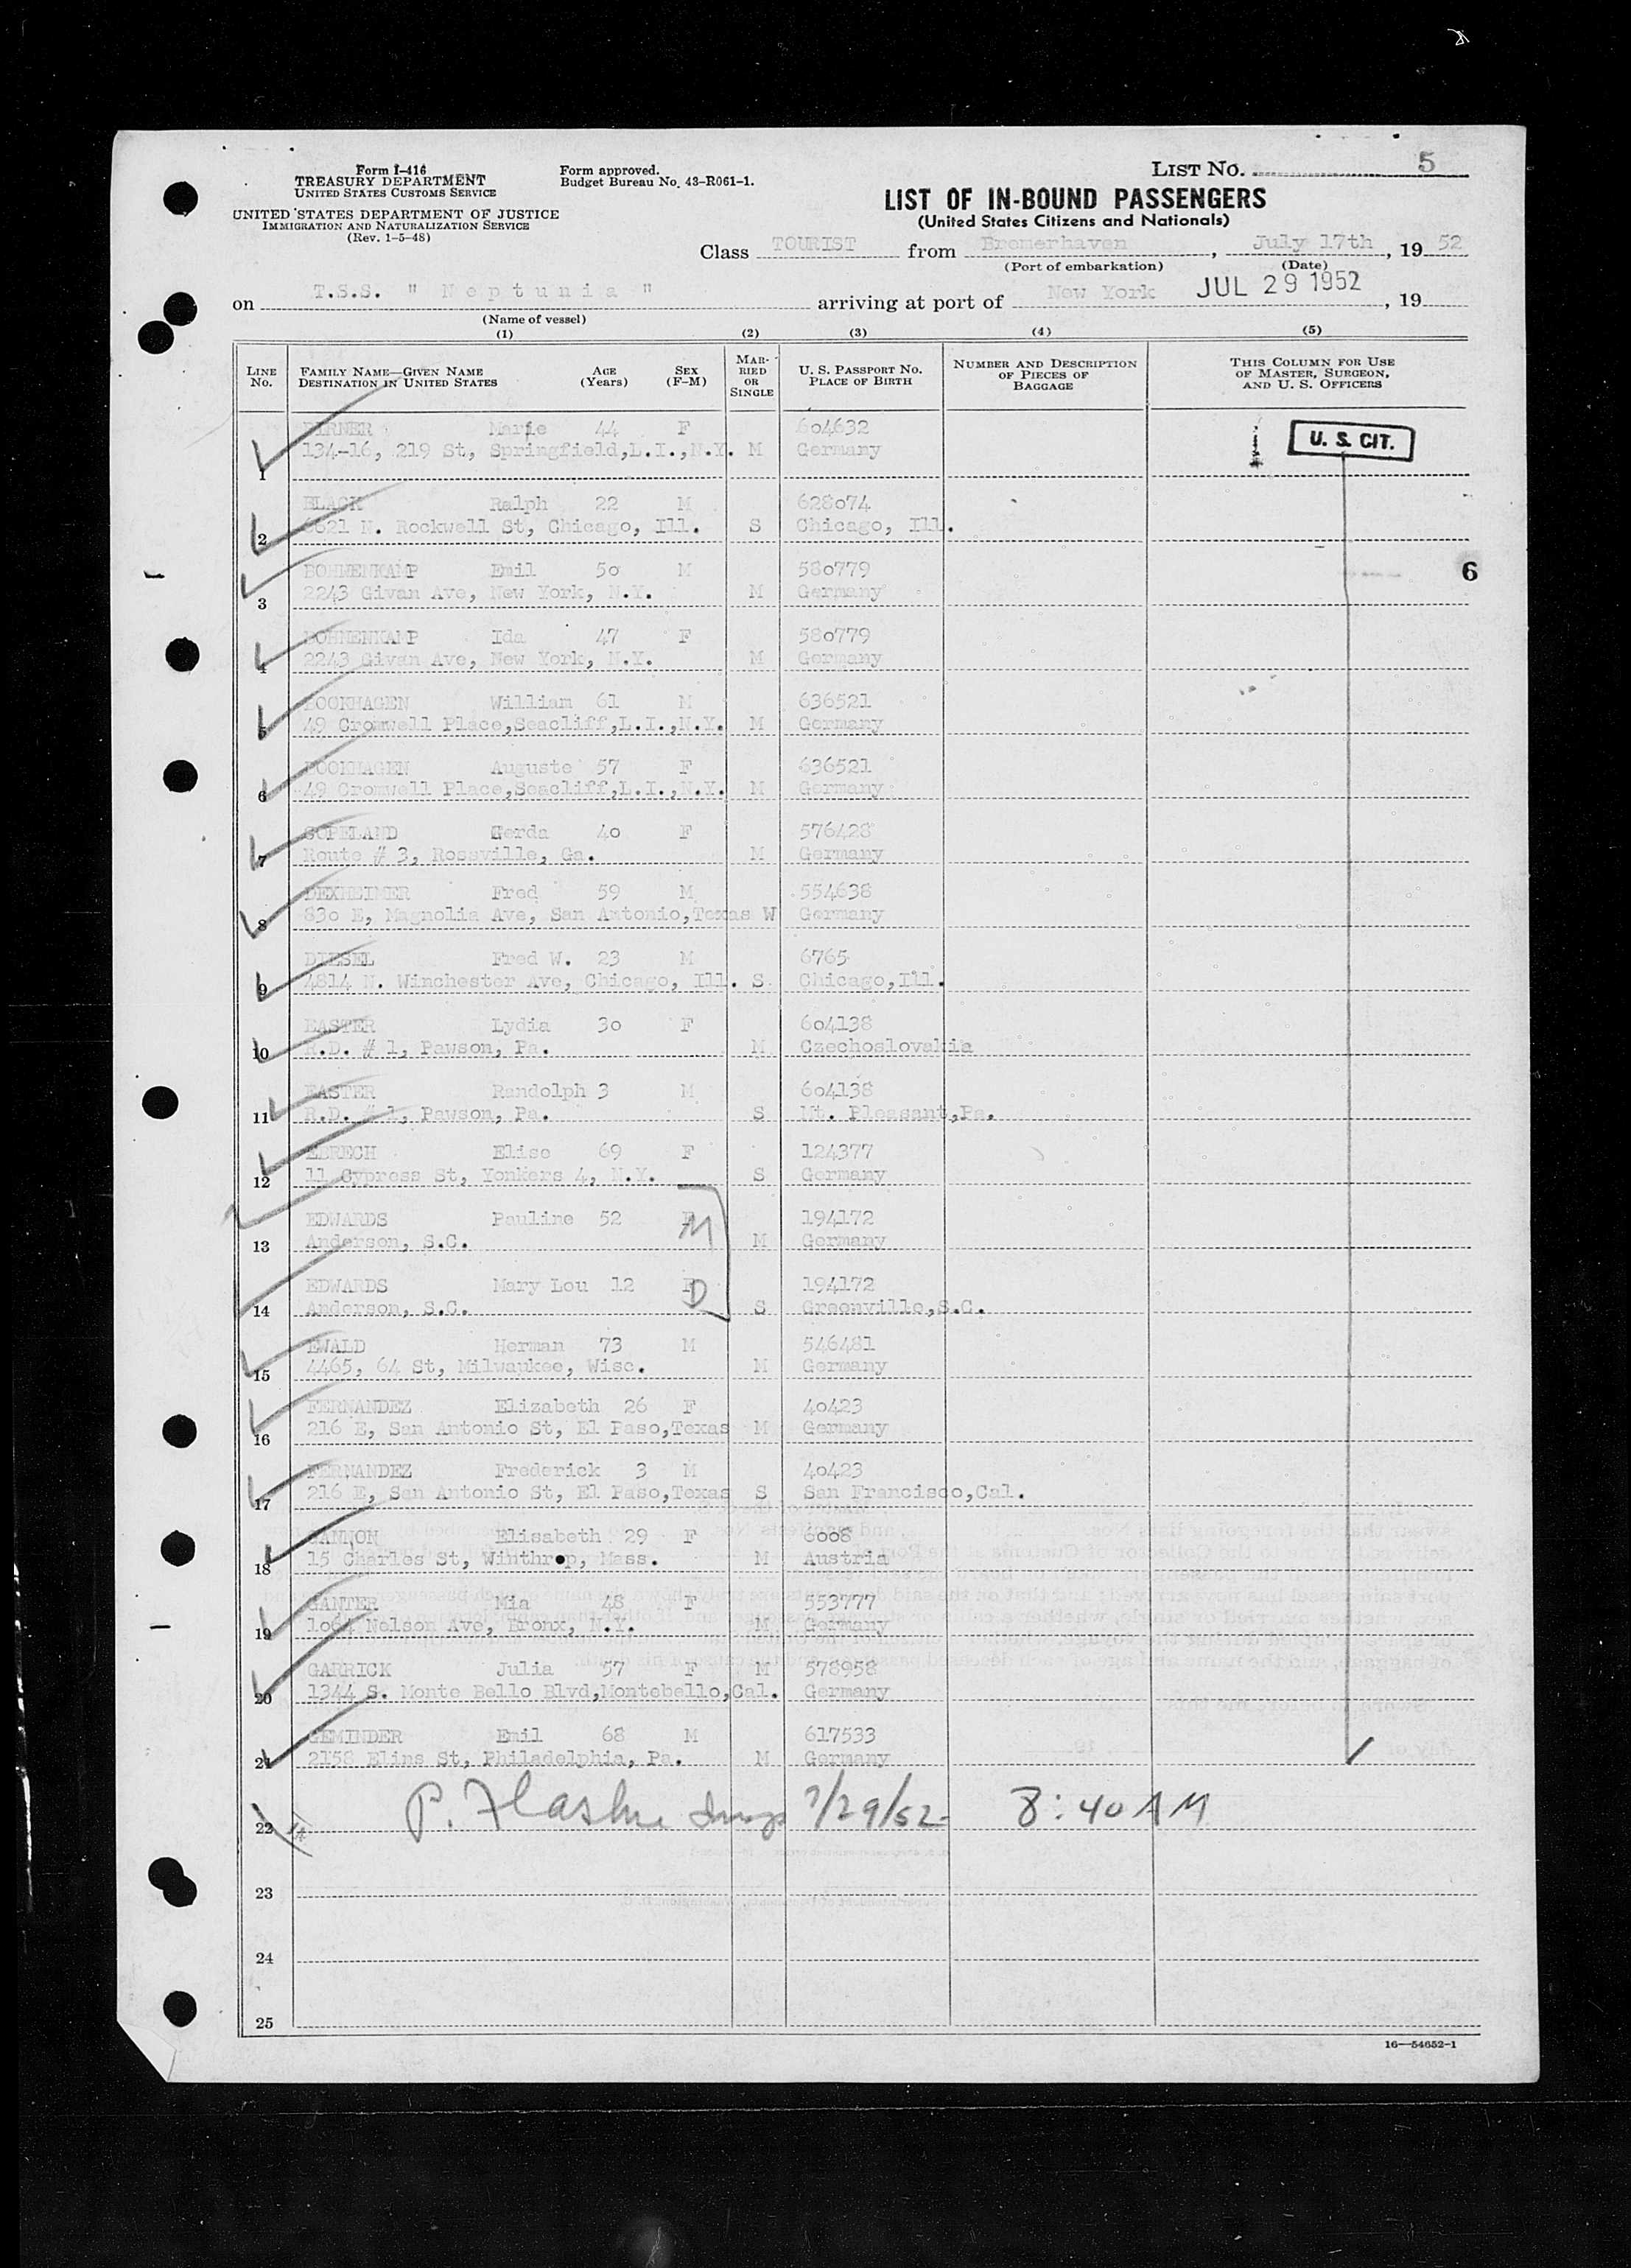 Form I-416
TREASURY DEPARTMENT
UNITED STATES CUSTOMS SERVICE
UNITED STATES DEPARTMENT OF JUSTICE
IMMIGRATION AND NATURALIZATION SERVICE
(Rev. 1-5-48)
Form approved.
Budget Bureau No. 43-R061-1.
LIST NO. 5
LIST OF IN-BOUND PASSENGERS
(United States Citizens and Nationals)
Class TOURIST from Bremerhaven, July 17th, 19 52
(Port of embarkation) (Date)
on T.S.S. " Neptunia " arriving at port of New York JUL 29 1952, 19
(Name of vessel)
(1) (2) (3) (4) (5)
LINE NO. FAMILY NAME—GIVEN NAME DESTINATION IN UNITED STATES AGE (Years) SEX (F-M) MARRIED OR SINGLE U. S. PASSPORT NO. PLACE OF BIRTH NUMBER AND DESCRIPTION OF PIECES OF BAGGAGE THIS COLUMN FOR USE OF MASTER, SURGEON, AND U. S. OFFICERS
Marie 44 F 604632 U. S. CIT.
1 134-16, 219 St, Springfield,L.I.,N.Y. M Germany
BLACK Ralph 22 M 628074
2 6621 N. Rockwell St, Chicago, Ill. S Chicago, Ill.
BOHNENKAMP Emil 50 M 580779 6
3 2243 Givan Ave, New York, N.Y. M Germany
BOHNENKAMP Ida 47 F 580779
4 2243 Givan Ave, New York, N.Y. M Germany
BOOKHAGEN William 61 M 636521
5 49 Cromwell Place,Seacliff,L.I.,N.Y. M Germany
BOOKHAGEN Auguste 57 F 636521
6 49 Cromwell Place,Seacliff,L.I.,N.Y. M Germany
COPELAND Gerda 40 F 576428
7 Route # 3, Rossville, Ga. M Germany
DEXHEIMER Fred 59 M 554638
8 830 E, Magnolia Ave, San Antonio,Texas W Germany
DIESEL Fred W. 23 M 6765
9 4814 N. Winchester Ave, Chicago, Ill. S Chicago,Ill.
EASTER Lydia 30 F 604138
10 R.D. # 1, Pawson, Pa. M Czechoslovakia
EASTER Randolph 3 M 604138
11 R.D. # 1, Pawson, Pa. S Mt. Pleasant,Pa.
Elise 69 F 124377
12 11 Cypress St, Yonkers 4, N.Y. S Germany
EDWARDS Pauline 52 F M 194172
13 Anderson, S.C. M Germany
EDWARDS Mary Lou 12 F D 194172
14 Anderson, S.C. S Greenville,S.C.
EWALD Herman 73 M 546481
15 4465, 64 St, Milwaukee, Wisc. M Germany
FERNANDEZ Elizabeth 26 F 40423
16 216 E, San Antonio St, El Paso,Texas M Germany
FERNANDEZ Frederick 3 M 40423
17 216 E, San Antonio St, El Paso,Texas S San Francisco,Cal.
GANNON Elisabeth 29 F 6008
18 15 Charles St, Winthrop, Mass. M Austria
GANTER Mia 48 F 553777
19 1064 Nelson Ave, Bronx, N.Y. M Germany
GARRICK Julia 57 F M 578958
20 1344 S. Monte Bello Blvd,Montebello,Cal. Germany
GEMINDER Emil 68 M 617533
21 2158 Elins St, Philadelphia, Pa. M Germany
22 P. 7/29/52 8:40 AM
23
24
25
16—54652-1